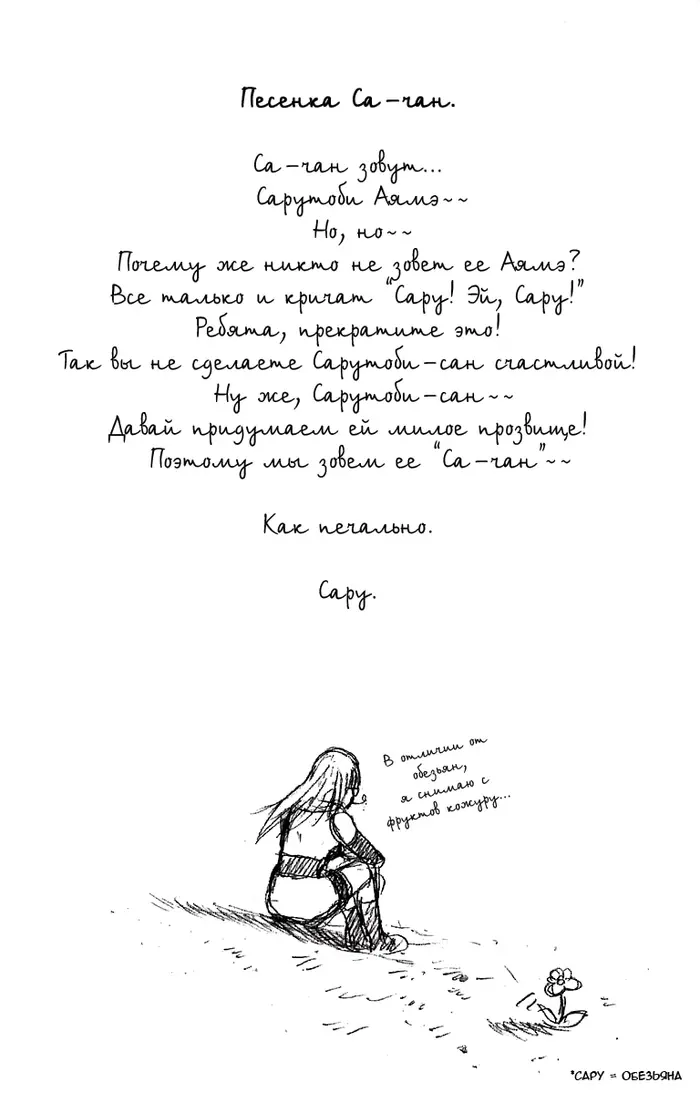 Песенка Са-чан.
Са-чан зовут...
Сарутоби Аямэ~~
Но, но~~
Почему же никто не зовет ее Аямэ?
Все только и кричат "Сару! Эй, Сару!"
Ребята, прекратите это!
Так вы не сделаете Сарутоби-сан счастливой!
Ну же, Сарутоби-сан~~
Давай придумаем ей милое прозвище!
Поэтому мы зовем ее "Са-чан"~~
Как печально.
Сару.
В отличии от
обезьян,
я снимаю с
фруктов кожуру...
*САРУ = ОБЕЗЬЯНА